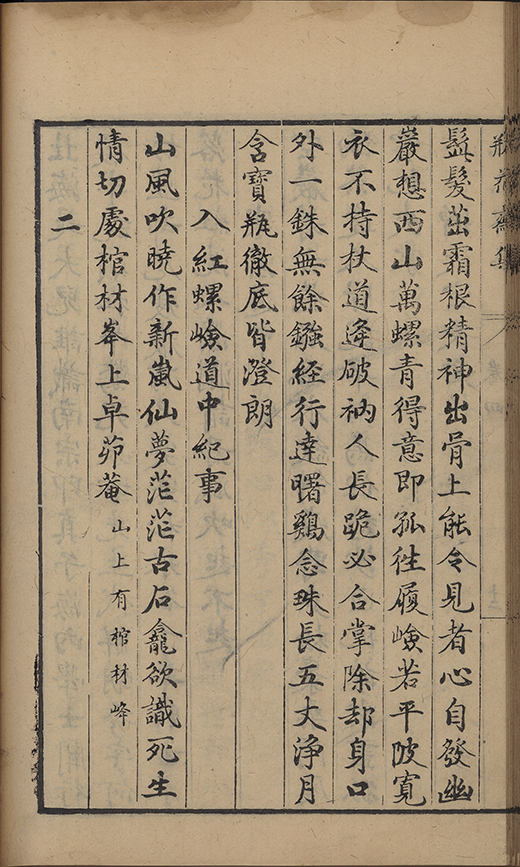 瓶花齋集
卷四
鬒髮茁霜根精神出骨上能令見者心自發幽
巖想西山萬螺青得意即孤徃履嶮若平陂寬
衣不持杖道逢破衲人長跪必合掌除却身口
外一銖無餘鏹経行達曙鷄念珠長五丈淨月
含寶瓶徹底皆澄朗
入紅螺嶮道中紀事
山風吹曉作新嵐仙夢茫茫古石龕欲識死生
情切處棺材峯上卓茆菴山上有棺材峰
二